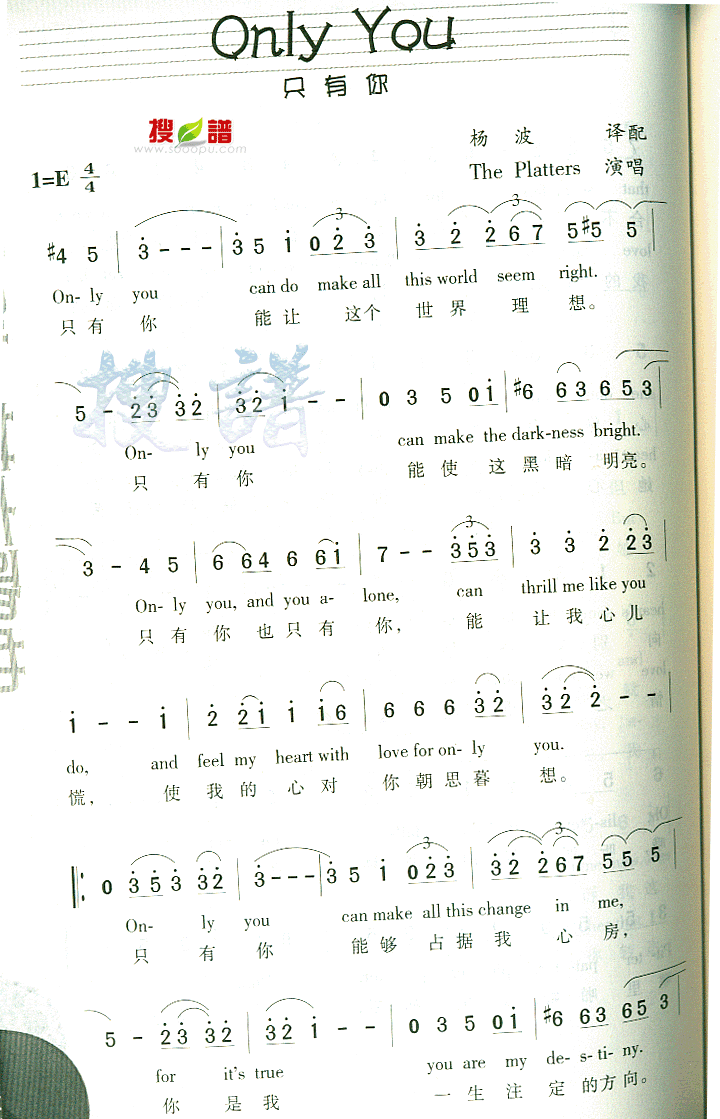 Only You
只有你
搜谱
www.sooopu.com
杨波 译配
1=E 4/4
The Platters 演唱
#4 5 | 3 - - - | 3 5 i 0 2 3 | 3 2 2 6 7 | 5 #5 5 5
On- ly you can do make all this world seem right.
只有 你 能让 这个 世界 理 想。
5 - 2 3 3 2 | 3 2 i - - | 0 3 5 0 i | #6 6 3 6 5 3
On- ly you can make the dark-ness bright.
只 有 你 能使 这黑暗 明亮。
3 - 4 5 | 6 6 4 6 6 i | 7 - - 3 5 3 | 3 3 2 2 3
On- ly you, and you a- lone, can thrill me like you
只有 你也只有 你, 能 让我心儿
i - - i | 2 2 i i i 6 | 6 6 6 3 2 | 3 2 2 - -
do, and feel my heart with love for on- ly you.
慌, 使我的心对 你朝思暮 想。
0 3 5 3 3 2 | 3 - - - | 3 5 i 0 2 3 | 3 2 2 6 7 5 5 5
On- ly you can make all this change in me,
只 有 你 能够 占据我 心 房,
5 - 2 3 3 2 | 3 2 i - - | 0 3 5 0 i | #6 6 3 6 5 3
for it's true you are my de- s-ti- ny.
你 是我 一生注 定的方向。